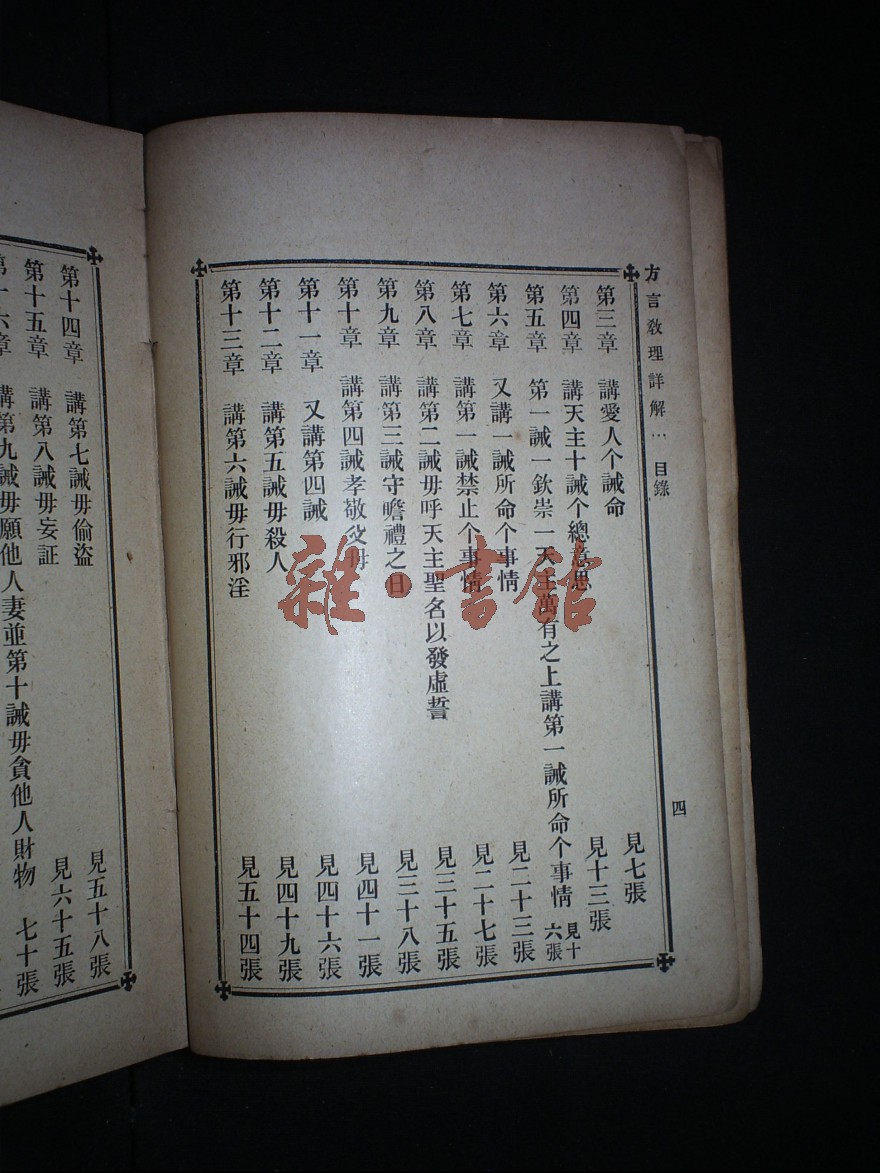 方言敎理詳解… 目錄
四
第三章 講愛人个誡命 見七張
第四章 講天主十誡个總意思 見十三張
第五章 第一誡一欽崇一天主萬有之上講第一誡所命个事情 見十六張
第六章 又講一誡所命个事情 見二十三張
第七章 講第一誡禁止个事情 見二十七張
第八章 講第二誡毋呼天主聖名以發虛誓 見三十五張
第九章 講第三誡守瞻禮之日 見三十八張
第十章 講第四誡孝敬父母 見四十一張
第十一章 又講第四誡 見四十六張
第十二章 講第五誡毋殺人 見四十九張
第十三章 講第六誡毋行邪淫 見五十四張
第十四章 講第七誡毋偷盜 見五十八張
第十五章 講第八誡毋妄証 見六十五張
第十六章 講第九誡毋願他人妻並第十誡毋貪他人財物 七十張
雜·書館